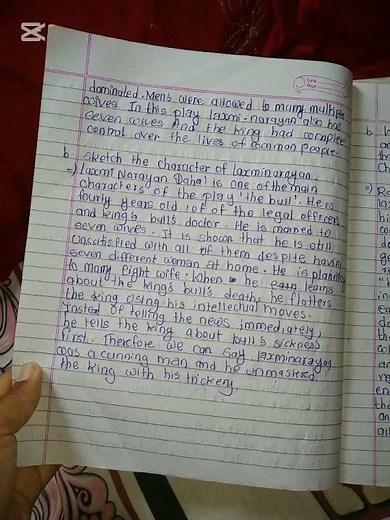 dominated. Men's were allowed to marry multiple
wives In this play laxmi-narayan also has
seven wives And the king had complete
control over the lives of common people.
b. sketch the character of laxminarayan.
→) Laxmi Narayan Dahal is one of the main
characters of the play 'the bull'. He is
fourty years old of the legal officers
and king's bull's doctor. He is married to
seven wives. It is shown that he is still
unsatisfied with all of them despite having
seven different woman at home. He is planning
to marry eight wife. When he learns
about the king's bull's death, he flatters
the king using his intellectual moves.
Instead of telling the news immediately,
he tells the king about bull's sickness
first. Therefore we can say laxminarayan
was a cunning man and he unmastered
the king with his trickery.